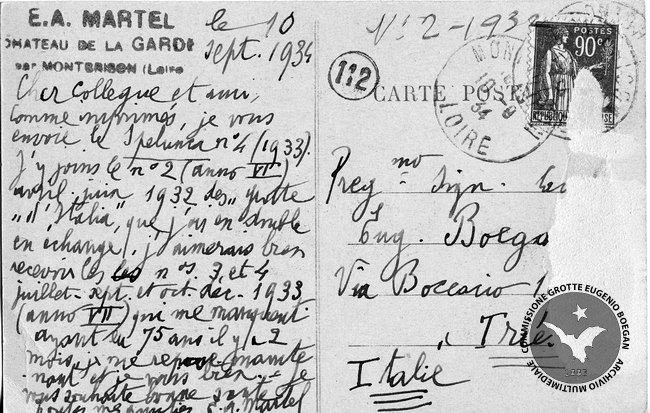 E.A. MARTEL
CHATEAU DE LA GARDE
par MONTBRISON (Loire
le 10
sept. 1934
Cher Collegue et ami,
comme imprimés, je vous
envoie le Spelunca n°4 (1933).
J'y joins le n°2 (anno VI)
avril. juin 1932 des „ grotte
„ d'Italia", que j'ai en double
en echange, j'aimerais bien
recevoir les n°s. 3 et 4
juillet-sept. et oct. déc. 1933
(anno VII) qui me manquent
ayant eu 75 ans il y a 2
mois, je me repose mainte
nant et vais bien. - Je
vous souhaite bonne santé
E. A. Martel
N° 2 - 1932
112
CARTE POSTALE
POSTES
90c
MONTBRISON
LOIRE
34
Preg mo Sign.
Eug. Boegan
Via Boccacio 1
à Trie
Italie
COMMISSIONE GROTTE EUGENIO BOEGAN
ARCHIVIO MULTIMEDIALE